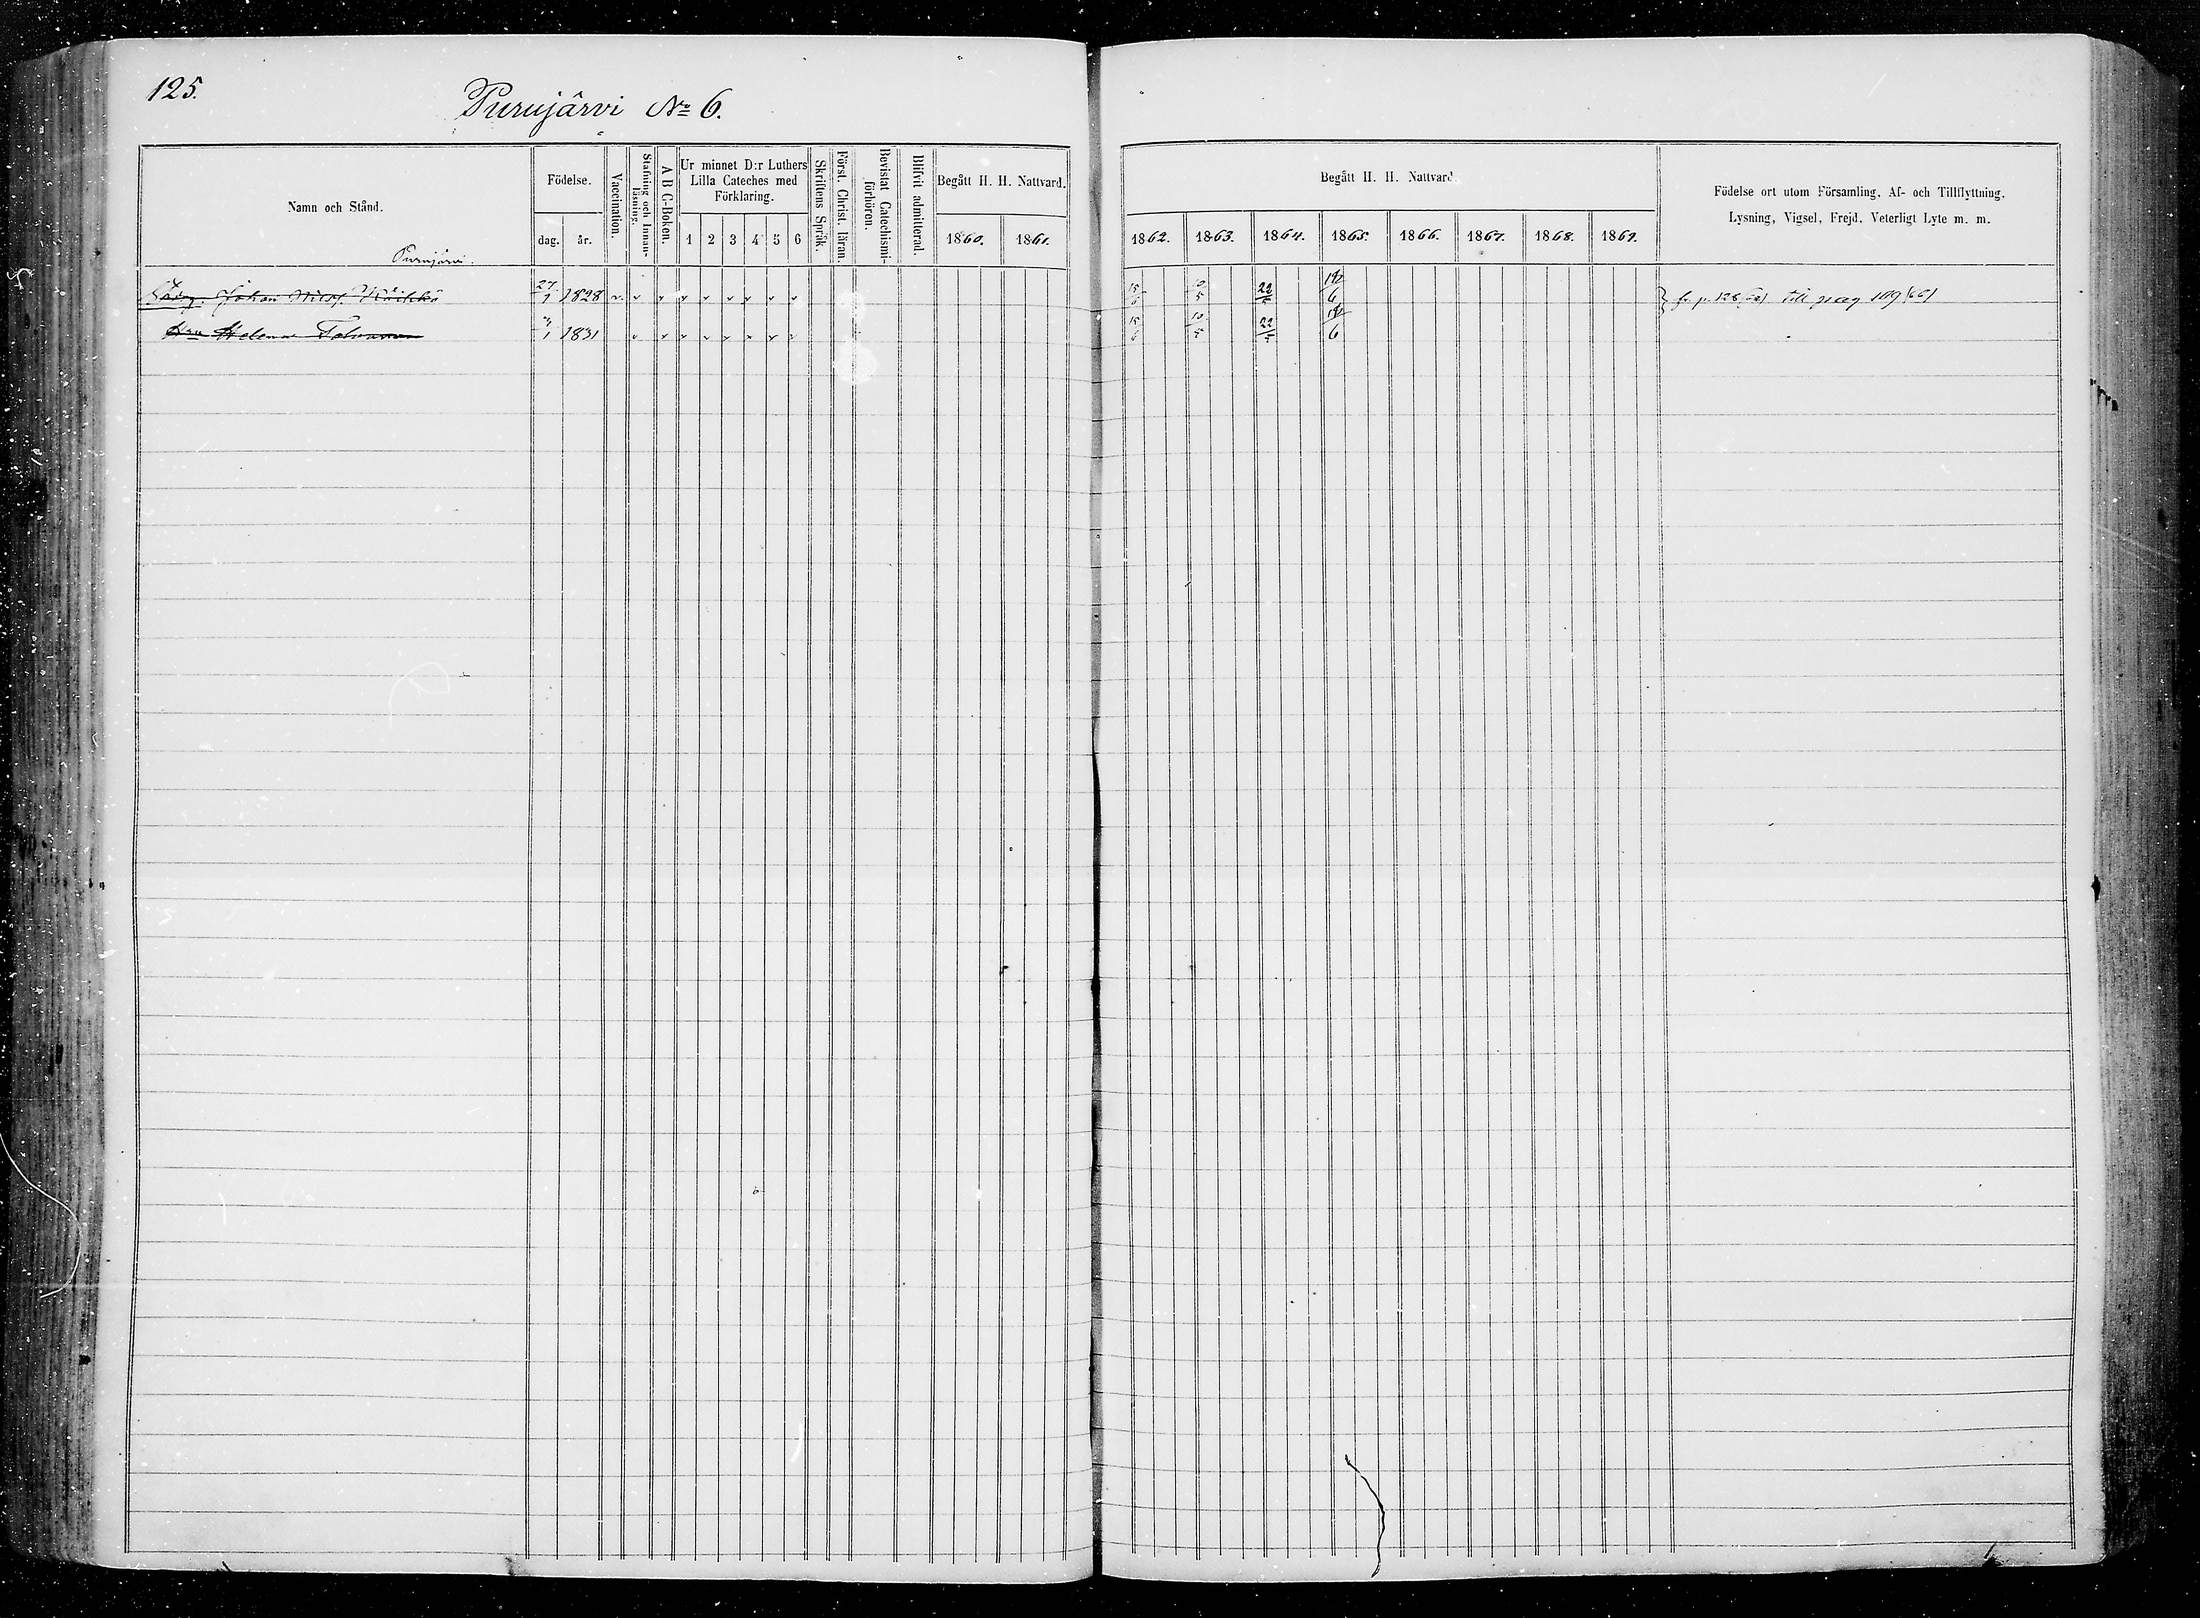 125.
Purujärvi No 6.
Namn och Stånd.
Födelse.
dag.
år.
Vaccination.
Stafning och Innan-
läsning.
A B C-Boken.
Ur minnet D:r Luthers
Lilla Cateches med
Förklaring.
1 2 3 4 5 6
Skriftens Språk.
Först. Christ. läran.
Bevistat Catechismi-
förhören.
Blifvit admitterad.
Begått H. H. Nattvard.
1860. 1861.
Begått H. H. Nattvard.
1862. 1863. 1864. 1865. 1866. 1867. 1868. 1869.
Födelse ort utom Församling, Af- och Tillflyttning.
Lysning, Vigsel, Frejd, Veterligt Lyte m. m.
Purujärvi.
Johan 27/1 1828 v. v v v v v v v v 15/6 10/5 22/5 6 fr. p. 126 till pag 109 (66)
Helena 1 1831 v v v v v v v v 15/6 10/5 22/5 6